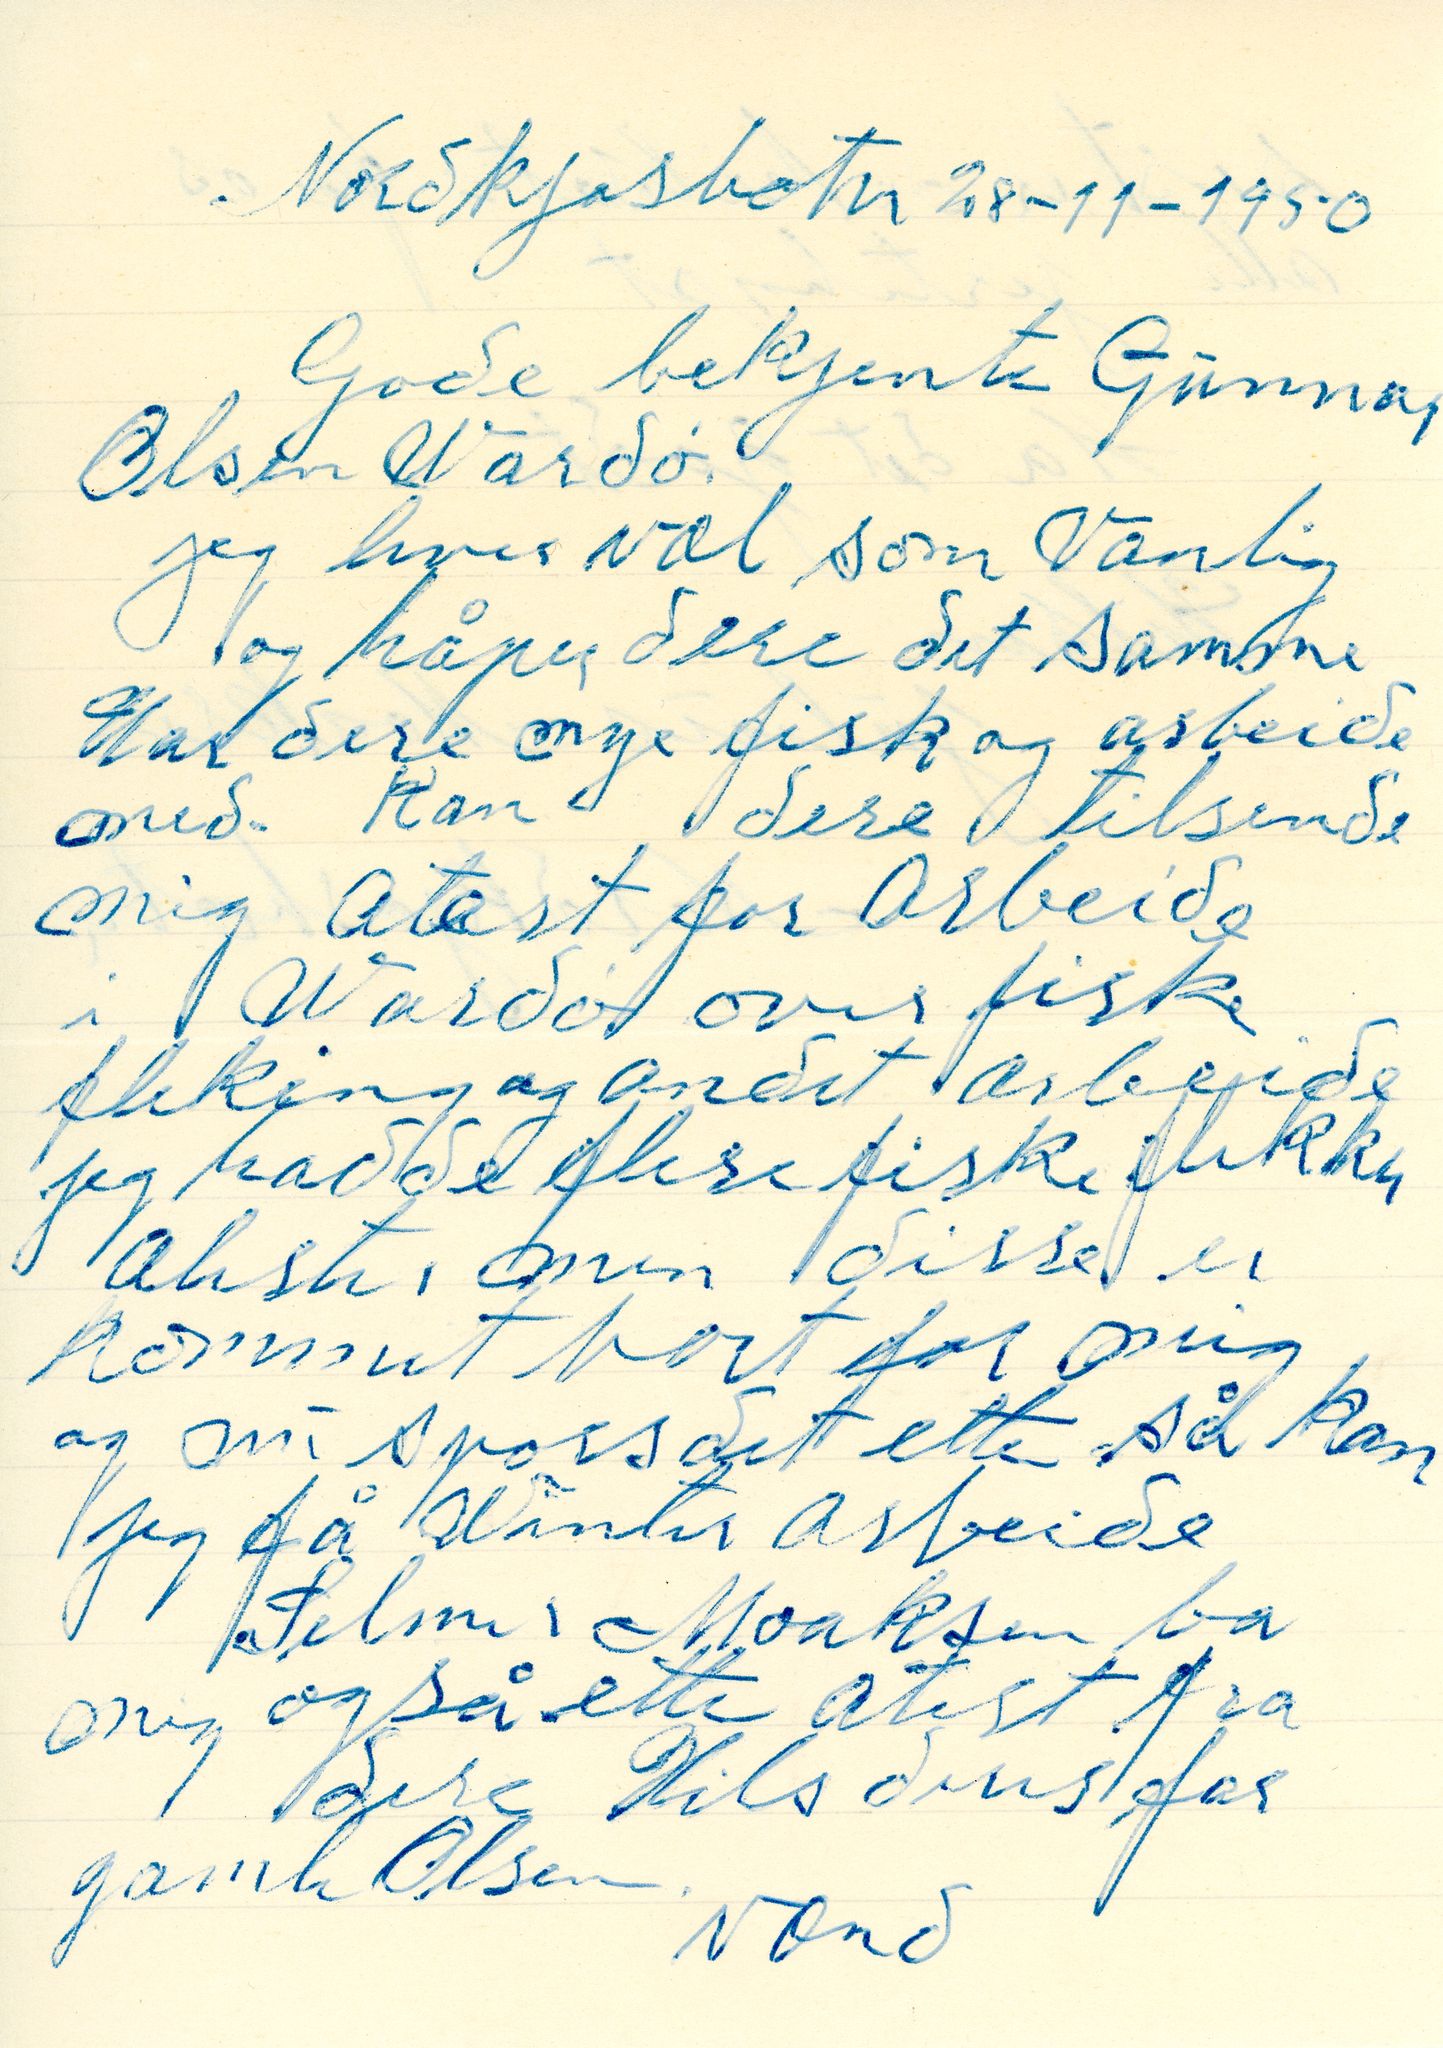 Nordkjosbotn 28-11-1950
Gode bekjente Gunnar
Olsen Vardö.
jeg lever væl som Vanlig
og håper dere det samme
Har dere mye fisk og arbeide
med. Kan dere tilsende
mig Atest for Arbeide
i Vardö over fiske
flekeing og andet arbeide
jeg hadde flere fiske flekker
Atester men disse er
kommet bort for mig
og nu spørs det etter så kan
jeg få Vinter Arbeide
Selmer Moaksen ba
mig også etter atest fra
dere Hils deres far
gamle Olsen.
vænd